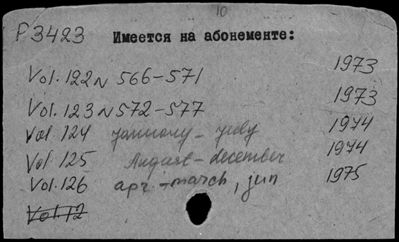 10
P3423 Имеется на абонементе:
Vol. 122 N 566-571 1973
Vol. 123 N 572-577 1973
Vol 124 January - July 1974
Vol. 125 August - december 1974
Vol. 126 apr. - march, jun 1975
Vol. 12